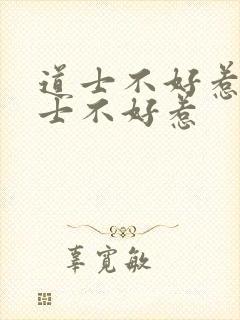 道士不好惹
士不好惹
辜宽敏